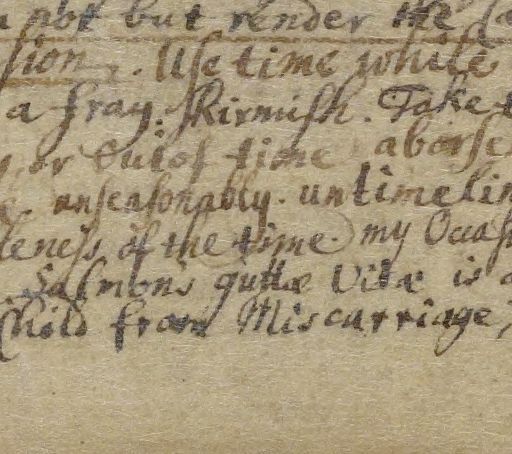 not but render the
sion. Use time while
a fray. skirmish. Take
or out of time aborse
unseasonably. untimelin
leness of the time. my Occas
Salmon's guttæ Vitæ is a
Child from Miscarriage,